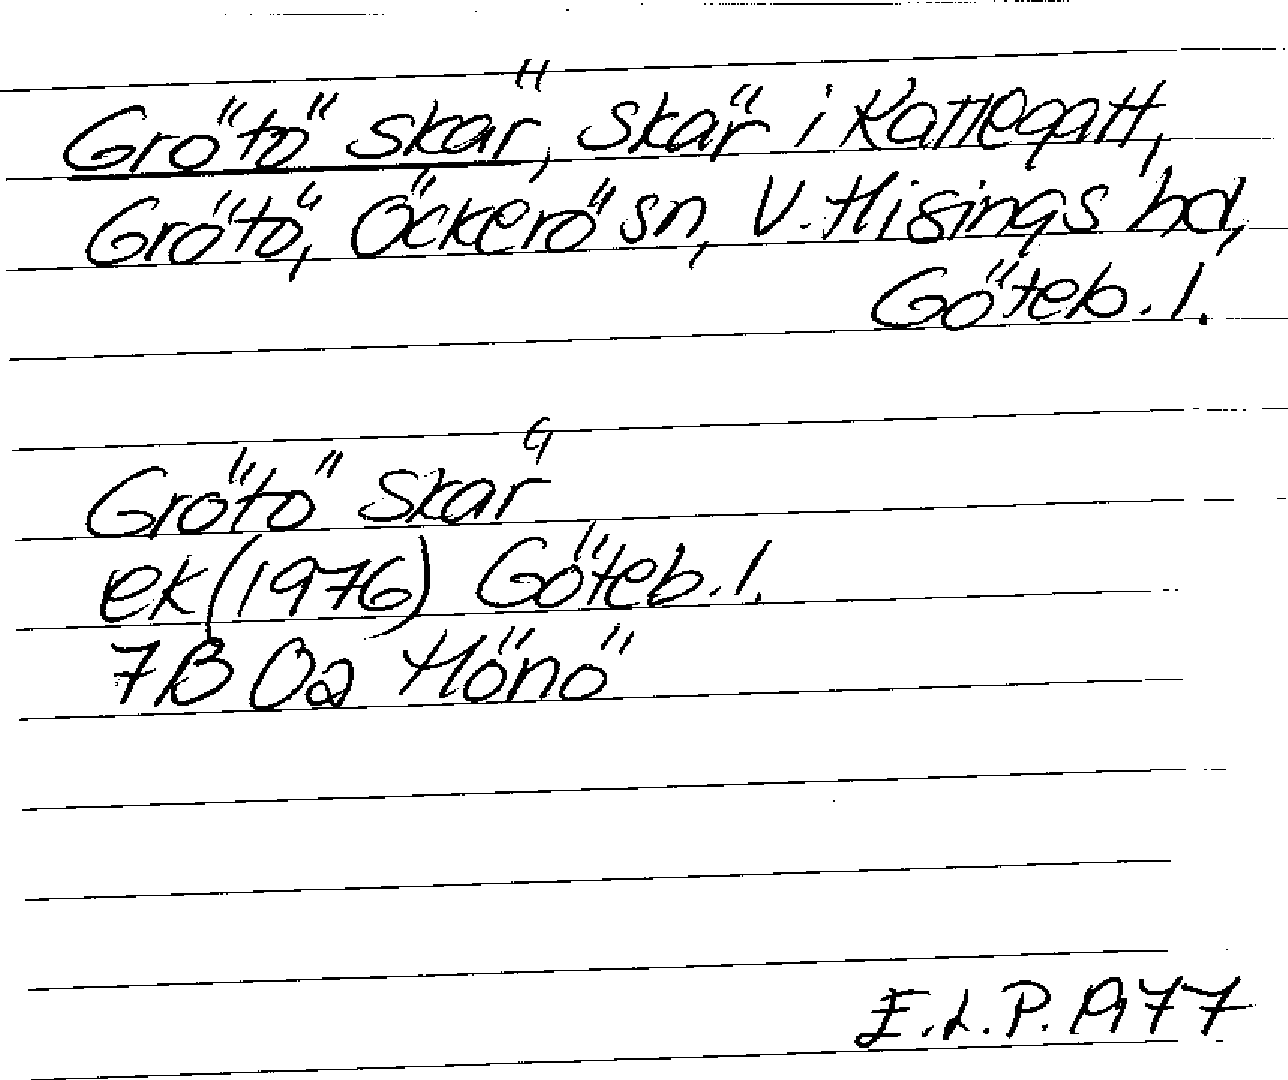 Grötö skär, skär i Kattegatt,
Grötö, Öckerö sn, V. Hisings hd,
Göteb. l.
Grötö skär
ek (1976) Göteb. l.
7B 0a Hönö
E.L.P. 1977